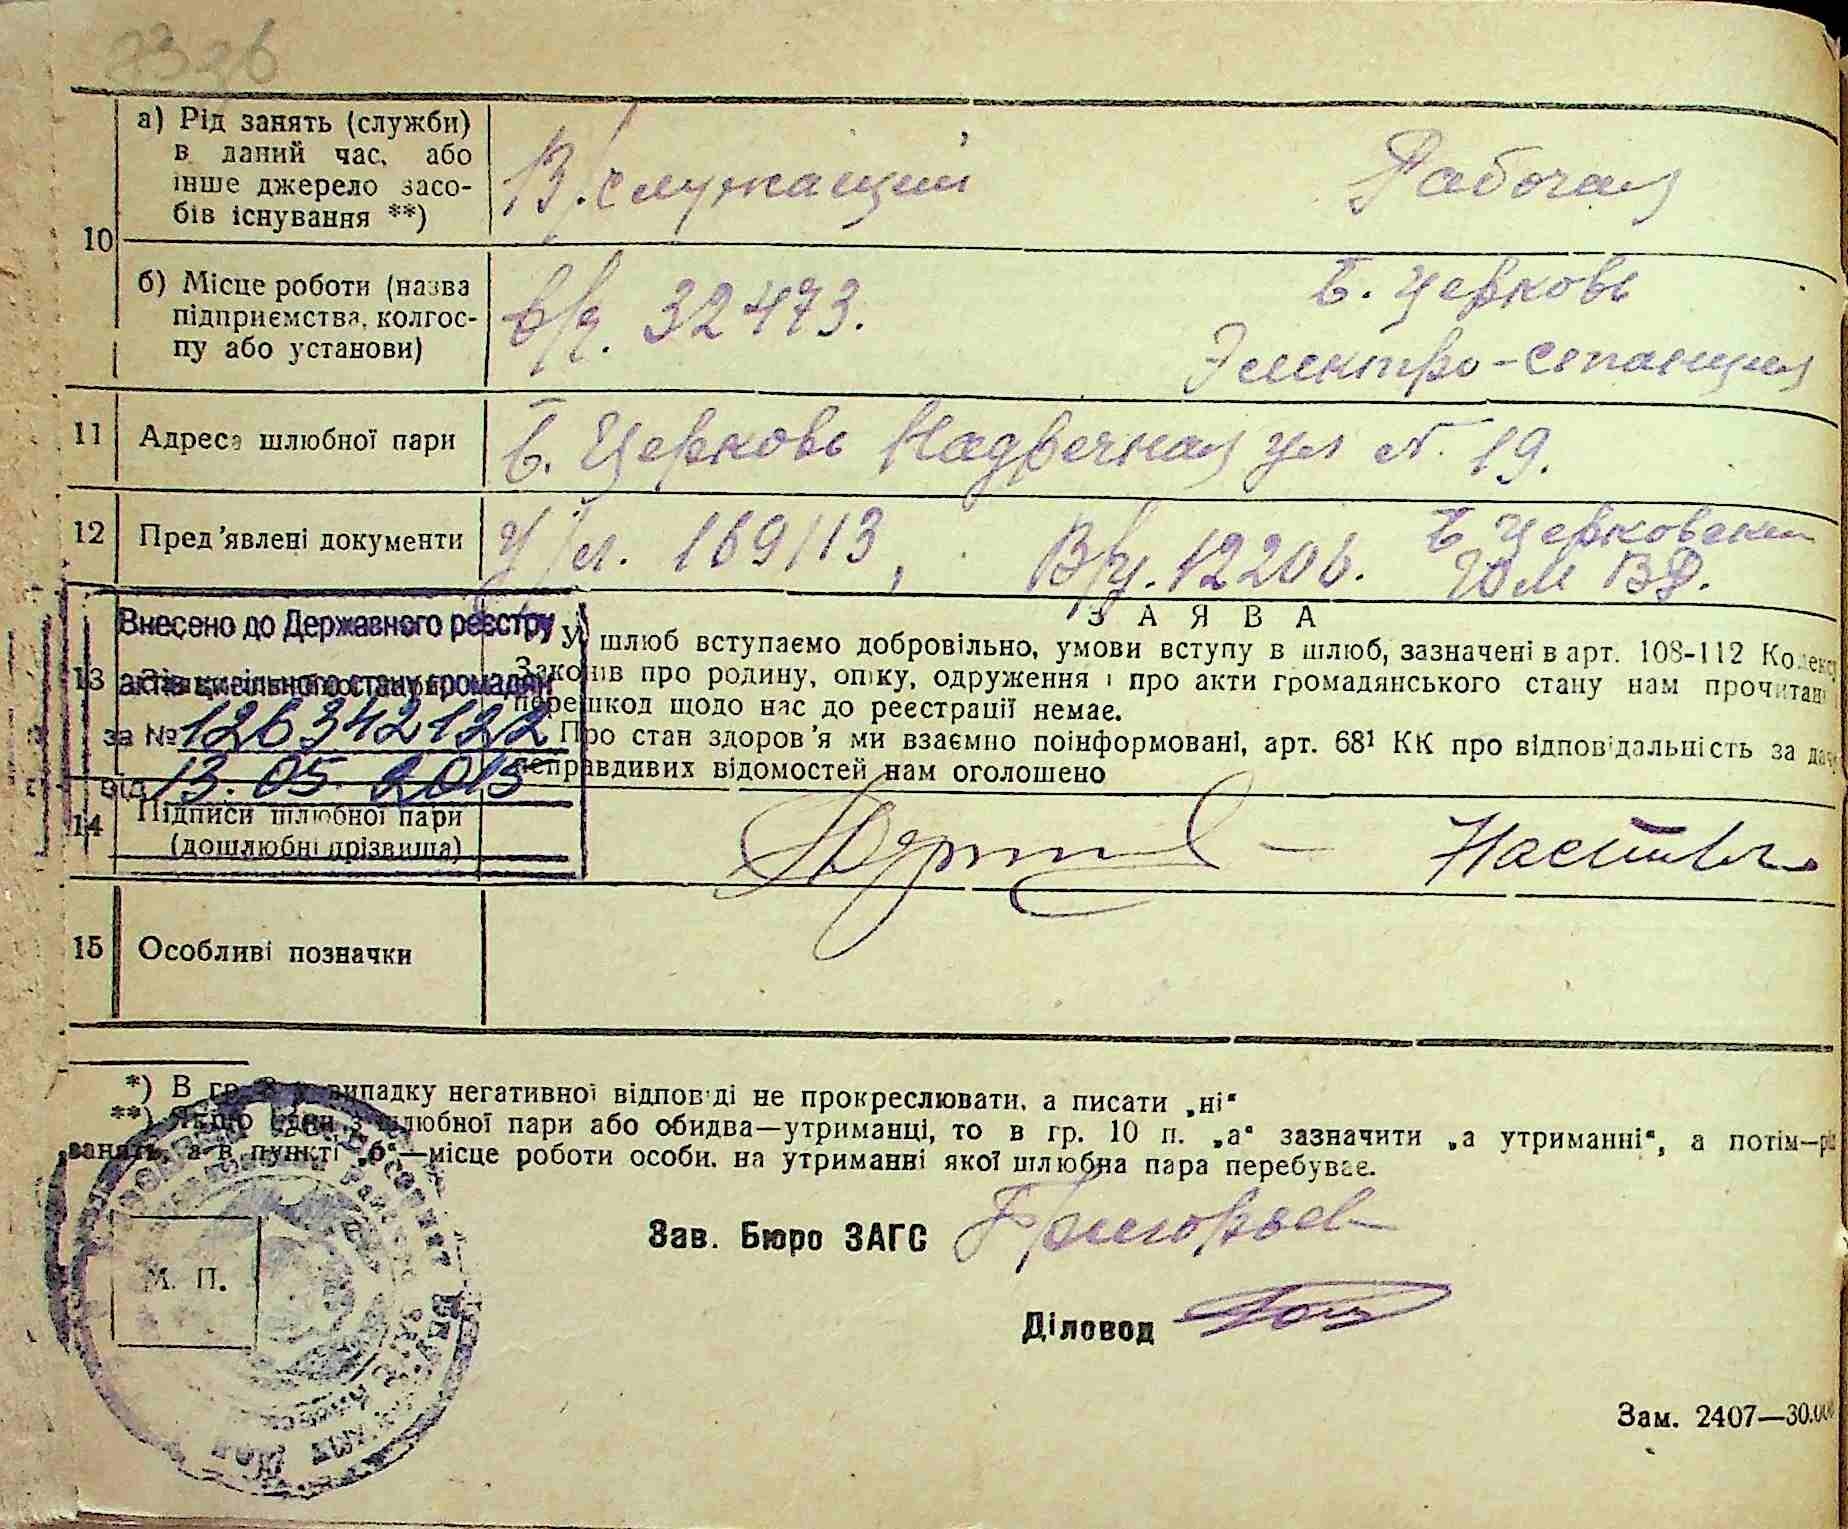 73 зв
10
а) Рід занять (служби)
в даний час, або
інше джерело засо-
бів існування **)
В/служащий
Рабочая
б) Місце роботи (назва
підприємства, колгос-
пу або установи)
в/ч. 32473.
Б. Церковь
Электро-станция
11 Адреса шлюбної пари
Б. Церковь Надречная ул N. 19.
12 Пред'явлені документи
У/л. 169113, В/ч. 12206. Б Церковским
ГОМ ВД.
Внесено до Державного реєстру
актів цивільного стану громадян
за № 126342122
від 13.05.2015
13
ЗАЯВА
У шлюб вступаємо добровільно, умови вступу в шлюб, зазначені в арт. 108-112 Кодексу
Законів про родину, опіку, одруження і про акти громадянського стану нам прочитані
перешкод щодо нас до реєстрації немає.
Про стан здоров'я ми взаємно поінформовані, арт. 68¹ КК про відповідальність за дачу
неправдивих відомостей нам оголошено
14 Підписи шлюбної пари
(дошлюбні прізвища)
15 Особливі позначки
*) В гр. випадку негативної відповіді не прокреслювати, а писати „ні“
**) Якщо один з шлюбної пари або обидва—утриманці, то в гр. 10 п. „а“ зазначити „а утриманні“, а потім—рід
занять, а в пункті „б“—місце роботи особи, на утриманні якої шлюбна пара перебуває.
Зав. Бюро ЗАГС Григорьев
Діловод
М. П.
Зам. 2407—30.000